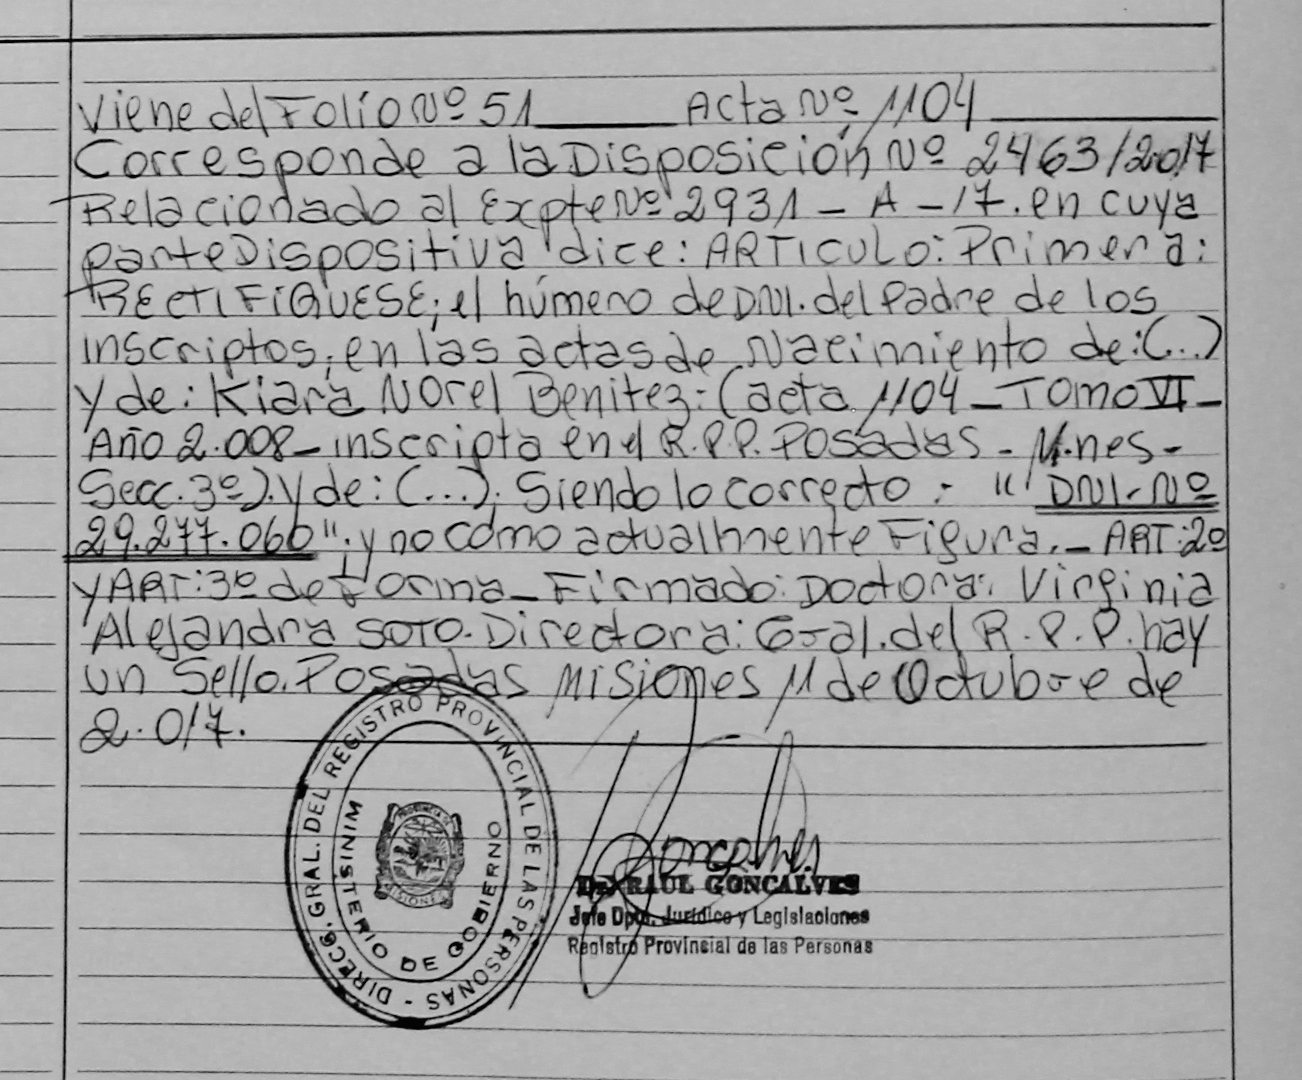 Viene del Folio Nº 51 Acta Nº 1104
Corresponde a la Disposición Nº 2463/2017
Relacionado al Expte Nº 2931 - A - 17. en cuya
parte Dispositiva dice: ARTICULO: Primera:
RECTIFIQUESE; el número de DNI. del Padre de los
inscriptos, en las actas de Nacimiento de: (...)
y de: Kiara Norel Benitez: (acta 1104 - Tomo VI -
Año 2.008 - inscripta en el R.P.P. Posadas - M.nes -
Secc. 3º). y de: (...). Siendo lo correcto: "DNI. Nº
29.277.066"; y no como actualmente Figura. - ART: 2º
y ART: 3º de Forma - Firmado: Doctora: Virginia
Alejandra SOTO. Directora: Gral. del R.P.P. hay
un Sello. Posadas Misiones 11 de Octubre de
2.017.
DIRECC. GRAL. DEL REGISTRO PROVINCIAL DE LAS PERSONAS -
MINISTERIO DE GOBIERNO
PROVINCIA DE
MISIONES
Goncalves
Dr. RAUL GONCALVES
Jefe Dpto. Jurídico y Legislaciones
Registro Provincial de las Personas